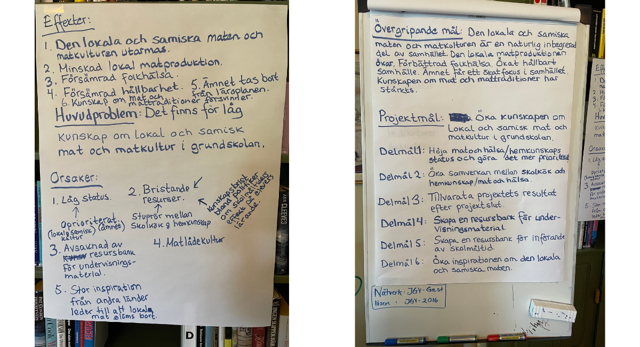 Effekter:
1. Den lokala och samiska maten och
matkulturen utarmas.
2. Minskad lokal matproduktion.
3. Försämrad folkhälsa.
4. Försämrad hållbarhet. 5. Ämnet tas bort
från läroplanen.
6. Kunskap om mat och
mattraditioner försvinner.
Huvudproblem: Det finns för låg
kunskap om lokal och samisk
mat och matkultur i grundskolan.
Orsaker:
1. Låg status.
↑
Oprioriterat
(lokal & samisk) (ämnet)
kultur
2. Bristande
resurser.
↑
Stuprör mellan
Skolkök & hemkunskap
Kunskapsbrist
bland politiker
om skolmåltidens
effekt på elevers
lärande.
3. Avsaknad av
resursbank
för undervisnings-
material.
4. Matlådekultur
5. Stor inspiration
från andra länder
leder till att lokala
mat glöms bort.
Övergripande mål: Den lokala och samiska
maten och matkulturen är en naturlig integrerad
del av samhället. Den lokala matproduktionen
ökar. Förbättrad folkhälsa. Ökat hållbart
samhälle. Ämnet får ett ökat focus i samhället.
Kunskapen om mat och mattraditioner har
stärkts.
Projektmål: Öka kunskapen om
Lokal och samisk mat och
matkultur i grundskolan.
Delmål 1: Höja mat och hälsa/hemkunskaps
status och göra det mer prioriterat
Delmål 2: Öka samverkan mellan skolkök och
hemkunskap/mat och hälsa
Delmål 3: Tillvarata projektets resultat
efter projektslut.
Delmål 4: Skapa en resursbank för under-
visningsmaterial.
Delmål 5: Skapa en resursbank för införande
av skolmåltid
Delmål 6: Öka inspirationen om den lokala
och samiska maten.
Nätverk: JGY-Gäst
JGY-2016
D